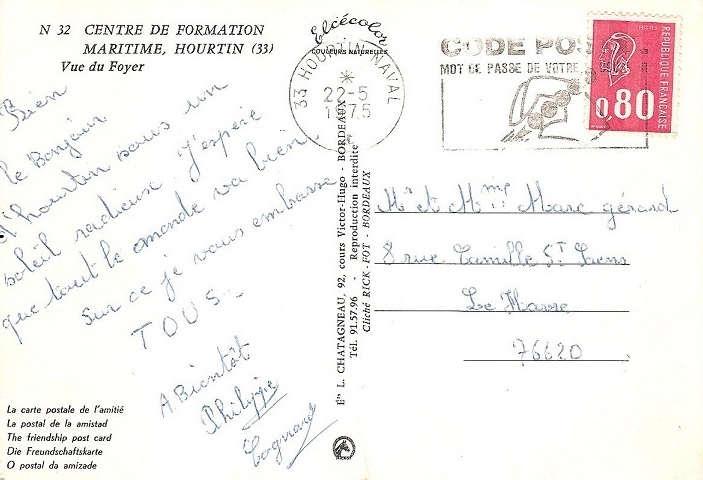 N 32 CENTRE DE FORMATION
MARITIME, HOURTIN (33)
Vue du Foyer
Elcécolor
COULEURS NATURELLES
Bien
le Bonjour
d'hourtin sous un
soleil radieuse j'espère
que tout le monde va bien.
sur ce je vous embrasse
TOUS -
A. Bientôt
Philippe
La carte postale de l'amitié
La postal de la amistad
The friendship post card
Die Freundschaftskarte
O postal da amizade
Ets L. CHATAGNEAU, 92, cours Victor-Hugo - BORDEAUX
Tél. 91.57.96 - Reproduction interdite
Cliché RICK-FOT - BORDEAUX
33 HOURTIN NAVAL
22-5
1975
CODE POS
MOT DE PASSE DE VOTRE
0,80
REPUBLIQUE FRANÇAISE
Mr et Mme Marc gérard
8 rue Camille St Saens
Le Havre
76620